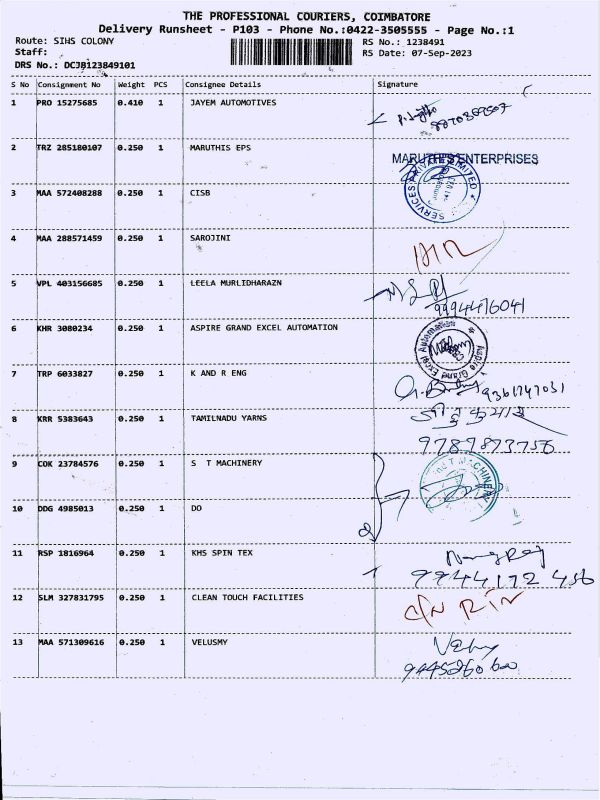 THE PROFESSIONAL COURIERS, COIMBATORE
Delivery Runsheet - P103 - Phone No.:0422-3505555 - Page No.:1
Route: SIHS COLONY RS No.: 1238491
Staff: RS Date: 07-Sep-2023
DRS No.: DCJB123849101
S No Consignment No Weight PCS Consignee Details Signature
1 PRO 15275685 0.410 1 JAYEM AUTOMOTIVES
2 TRZ 285180107 0.250 1 MARUTHIS EPS MARUTHIS ENTERPRISES
3 MAA 572408288 0.250 1 CISB SERVICES PRIVATE LIMITED
4 MAA 288571459 0.250 1 SAROJINI
5 VPL 403156685 0.250 1 LEELA MURLIDHARAZN 9994476041
6 KHR 3080234 0.250 1 ASPIRE GRAND EXCEL AUTOMATION Aspire Grand Excel Automation
7 TRP 6033827 0.250 1 K AND R ENG 9361747031
8 KRR 5383643 0.250 1 TAMILNADU YARNS
9789873756
9 COK 23784576 0.250 1 S T MACHINERY T MACHINERY
10 DDG 4985013 0.250 1 DO 2
11 RSP 1816964 0.250 1 KHS SPIN TEX
9944172 456
12 SLM 327831795 0.250 1 CLEAN TOUCH FACILITIES
13 MAA 571309616 0.250 1 VELUSMY